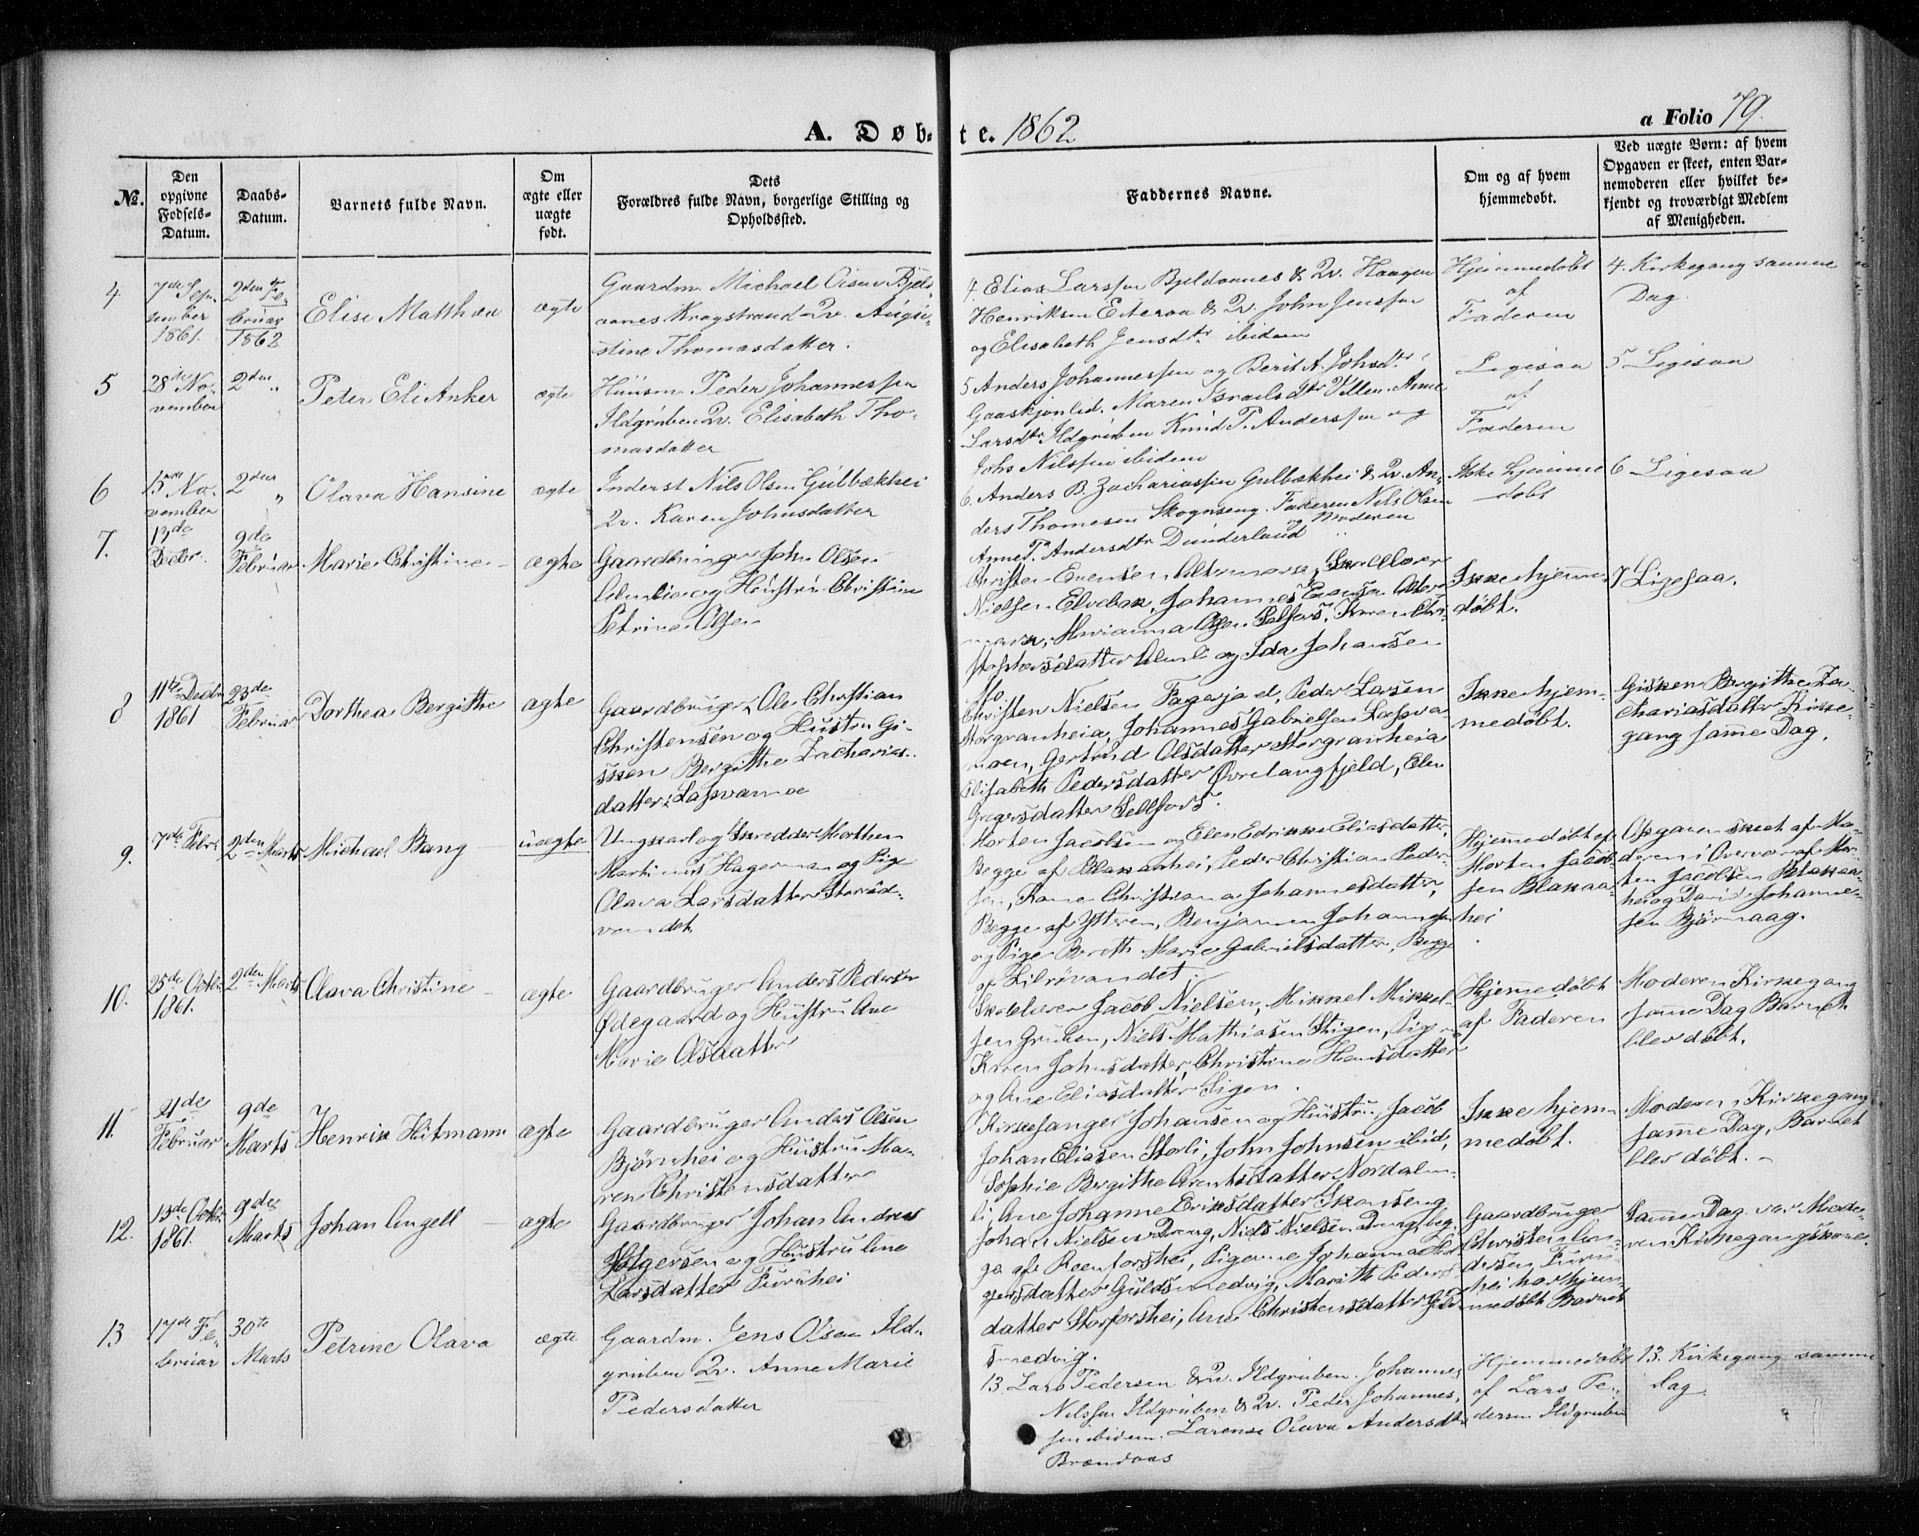 A. Døb-te. 1862
a Folio 79.
No.
Den opgivne Fødsels-Datum.
Daabs-Datum.
Barnets fulde Navn.
Om ægte eller uægte født.
Dets Forældres fulde Navn, borgerlige Stilling og Opholdssted.
Faddernes Navne.
Om og af hvem hjemmedøbt.
Ved uægte Børn: af hvem
Opgaven er skeet, enten Bar-
nemoderen eller hvilket be-
kjendt og troværdigt Medlem
af Menigheden.
4
1861.
2den Fe-
bruar
1862
Elise Matthea
ægte
Gaardm. Michael Olsen Bjeld-
aanes Kragstrand Qv. Augu-
stine Thomasdatter.
4. Elias Larssen Bjeldaanes & Qv. Haagen
Henriksen Eiteraa & Qv. John Jenssen
og Elisabeth Jensdtr ibidem
Hjemmedøbt
af
Faderen
4. Kirkegang samme
Dag.
5
28de No-
vember
2den "
Peter Eli Anker
ægte
Huusm. Peder Johannessen
Ildgruben Qv. Elisabeth Tho-
masdatter
5 Anders Johannessen og Berit A. Johsdtr
Gaaskjønlid. Maren Israelsdtr Villen. Anne
Larsdtr Ildgruben Knud P. Anderssen og
Johs Nilssen ibidem
Ligesaa
af
Faderen
5 Ligesaa
6
13de No-
vember
2den "
Olava Hansine
ægte
Inderst Nils Olsen Gulbækhei
Qv. Karen Johnsdatter
6. Anders B. Zachariassen Gulbækhei & Qv. An-
ders Thomesen Skognseng. Faderen Nils Olsen
Anne P. Andersdtr Dunderland og Moderen
Ikke hjemme
døbt
6 Ligesaa
7.
13de
Decbr.
9de
Februar
Marie Christine
ægte
Gaardbruger John Olsen
Almlie og Hustru Christine
Petrine Olsen
Christen Evensen Altermark,
Nielsen Elvebak, Johannes Evensen Alter-
mark, Marianna Olsen Selfors, Karen Chri-
stophersdatter Almli og Ida Johansen
Mo
Ikke hjemme-
døbt.
7 Ligesaa.
8
11te Decbr
1861
23de
Februar
Dorthea Bergithe
ægte
Gaardbruger Ole Christian
Christensen og Hustru Gi-
sken Bergitthe Zacharias-
datter Lasvamoe
Christen Nielsen Fagerjord, Peder Larsen
Storgranheia, Johannes Gabrielsen Lasva-
moen, Gertrud Olsdatter Storgranheia
Elisabeth Pedersdatter Øvrelangfjeld, Elen
Gregersdatter Sellfors.
Ikke hjem-
medøbt.
Gisken Bergitthe Za-
chariasdatter Kirke-
gang samme Dag.
9.
7de Febr
2den Marts
Michael Bang
uægte
Ungkarl og Skredder Morthen
Martinus Hagerman og Pige
Olava Larsdatter
vandet
Morten Jacobsen og Elen Edrikke Eliasdatter
Begge af Blakaahei, Peder Christian Peder-
sen, Karen Christiana Johannesdatter,
Begge af Ytteren, Benjamin Johannesen
og Pige Bereth Marie Gabrielsdatter, Begge
af Lilrøvandet.
Hjemmedøbt af
Morten Jacob-
sen Blakaa-
hei
Opgaven skeet af Mo-
deren i Overvær af Mor-
ten Jacobsen Blakaa-
hei og David Johanne-
sen Bjørnaag.
10.
25de Octbr
1861.
2den Marts
Olava Christine
ægte
Gaardbruger Anders Pedersen
Ødegaard og Hustru Ane
Marie Olsdatter
Skolelærer Jacob Nielsen, Mikkel Mikkel-
sen Gruben, Niels Mathiasen Stigen, Pigerne
Karen Johnsdatter, Christine Hansdatter
og Ane Eliasdatter Stigen.
Hjemmedøbt
af Faderen
Moderen Kirkegang
samme Dag Barnet
blev døbt.
11.
Februar
9de
Marts
Henrik Hitmann
ægte
Gaardbruger Anders Olsen
Bjørnhei og Hustru Ma-
ren Christensdatter
Kirkesanger Johansen og Hustru, Jacob
Johan Eliasen Storli, John Johnsen ibid,
Sophie Bergitthe Arentsdatter Nordalm-
li, Ane Johanne Eriksdatter Skonseng
Ikke hjem-
medøbt.
Moderen Kirkegang
samme Dag, Barnet
blev døbt. -
12.
13de Octbr
1861.
9de
Marts
Johan Angell
ægte
Gaardbruger Johan Andreas
Holgersen og Hustru Ane
Larsdatter Furuhei
Johan Nielsen Dang, Niels Nielsen Dang, beg-
ge af Reenforshei, Pigerne Johanna Hol-
gersdatter Guldsmedvig, Marith Peders-
datter Storforshei, Ane Christensdatter Guld-
smedvig.
Gaardbruger
Christen An-
dersen Furu-
hei har hjem-
medøbt Barnet
Samme Dag var Mode-
ren Kirkegangskone.
13
17de Fe-
bruar
30te
Marts
Petrine Olava
ægte
Gaardm. Jens Olsen Ild-
gruben Qv. Anne Marie
Pedersdatter
13. Lars Pedersen & Qv. Ildgruben. Johannes
Nilssen Ildgruben & Qv. Peder Johannes-
sen ibidem. Larense Olava Andersdtr
Brændaas
Hjemmedøbt
af Lars Pe-
dersen Ildgruben
13. Kirkegang samme
Dag.